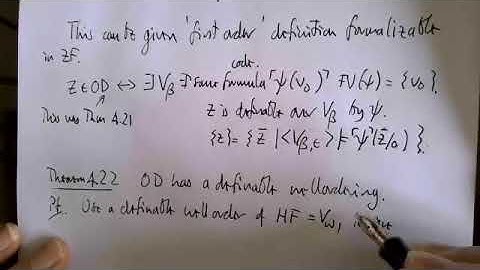 This can be given 'first order' definition formalizable
in ZF.
code.
Z ∈ OD ↔ ∃ V_β ∃ some formula ⌜ψ(v₀)⌝ FV(ψ) = {v₀}.
Z is definable over V_β by ψ.
This was Thm 4.21
{z} = { z̄ | <V_β, ∈> ⊨ ⌜ψ⌝(z̄/0) }.
Theorem 4.22 OD has a definable wellordering.
Pf. Use a definable wellorder of HF = V_ω,